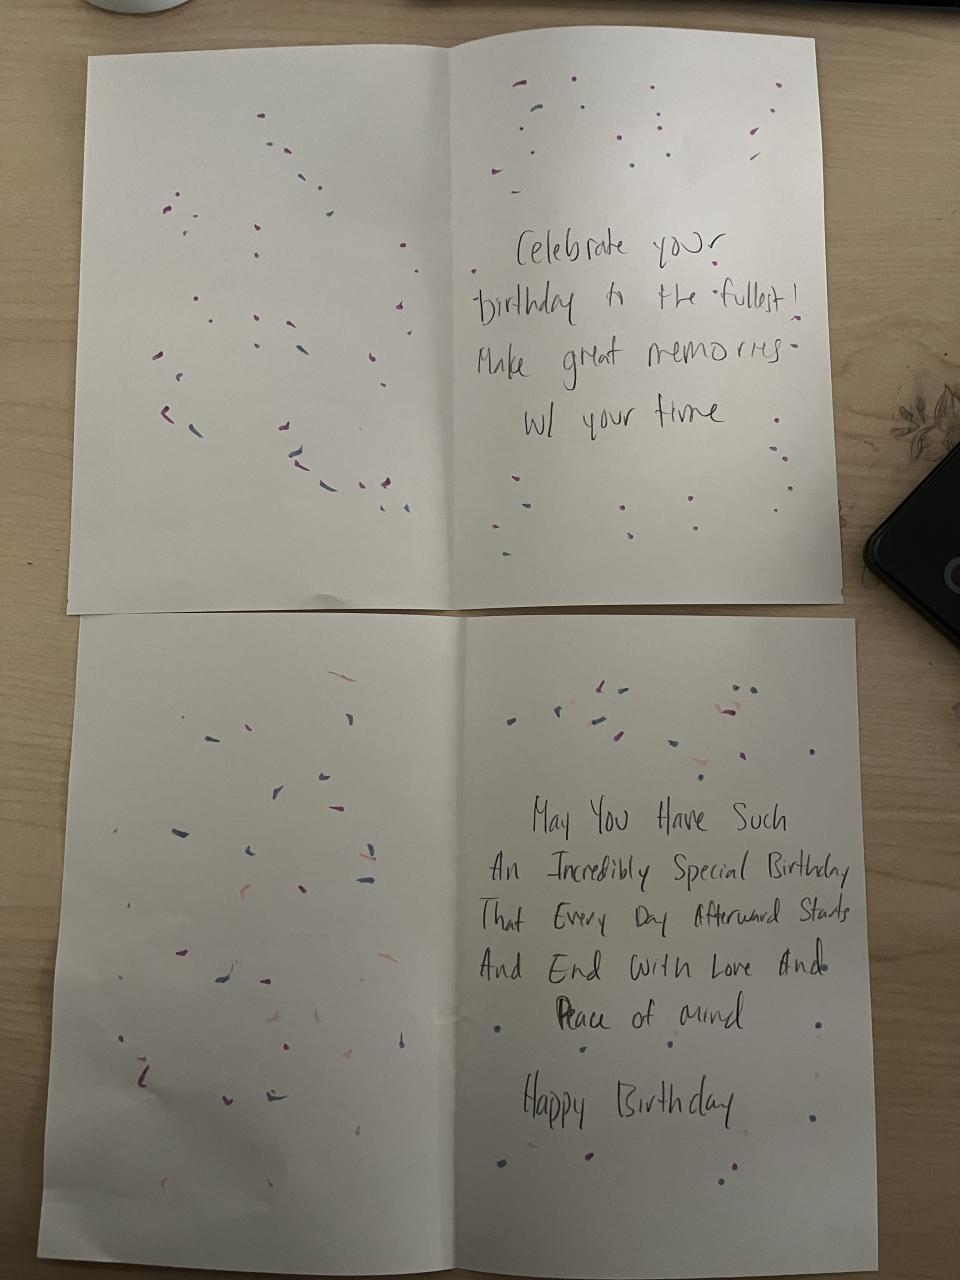 Celebrate your
birthday to the fullest!
Make great memories
w/ your time
May You Have Such
An Incredibly Special Birthday
That Every Day Afterward Starts
And End With Love And
Peace of mind
Happy Birthday